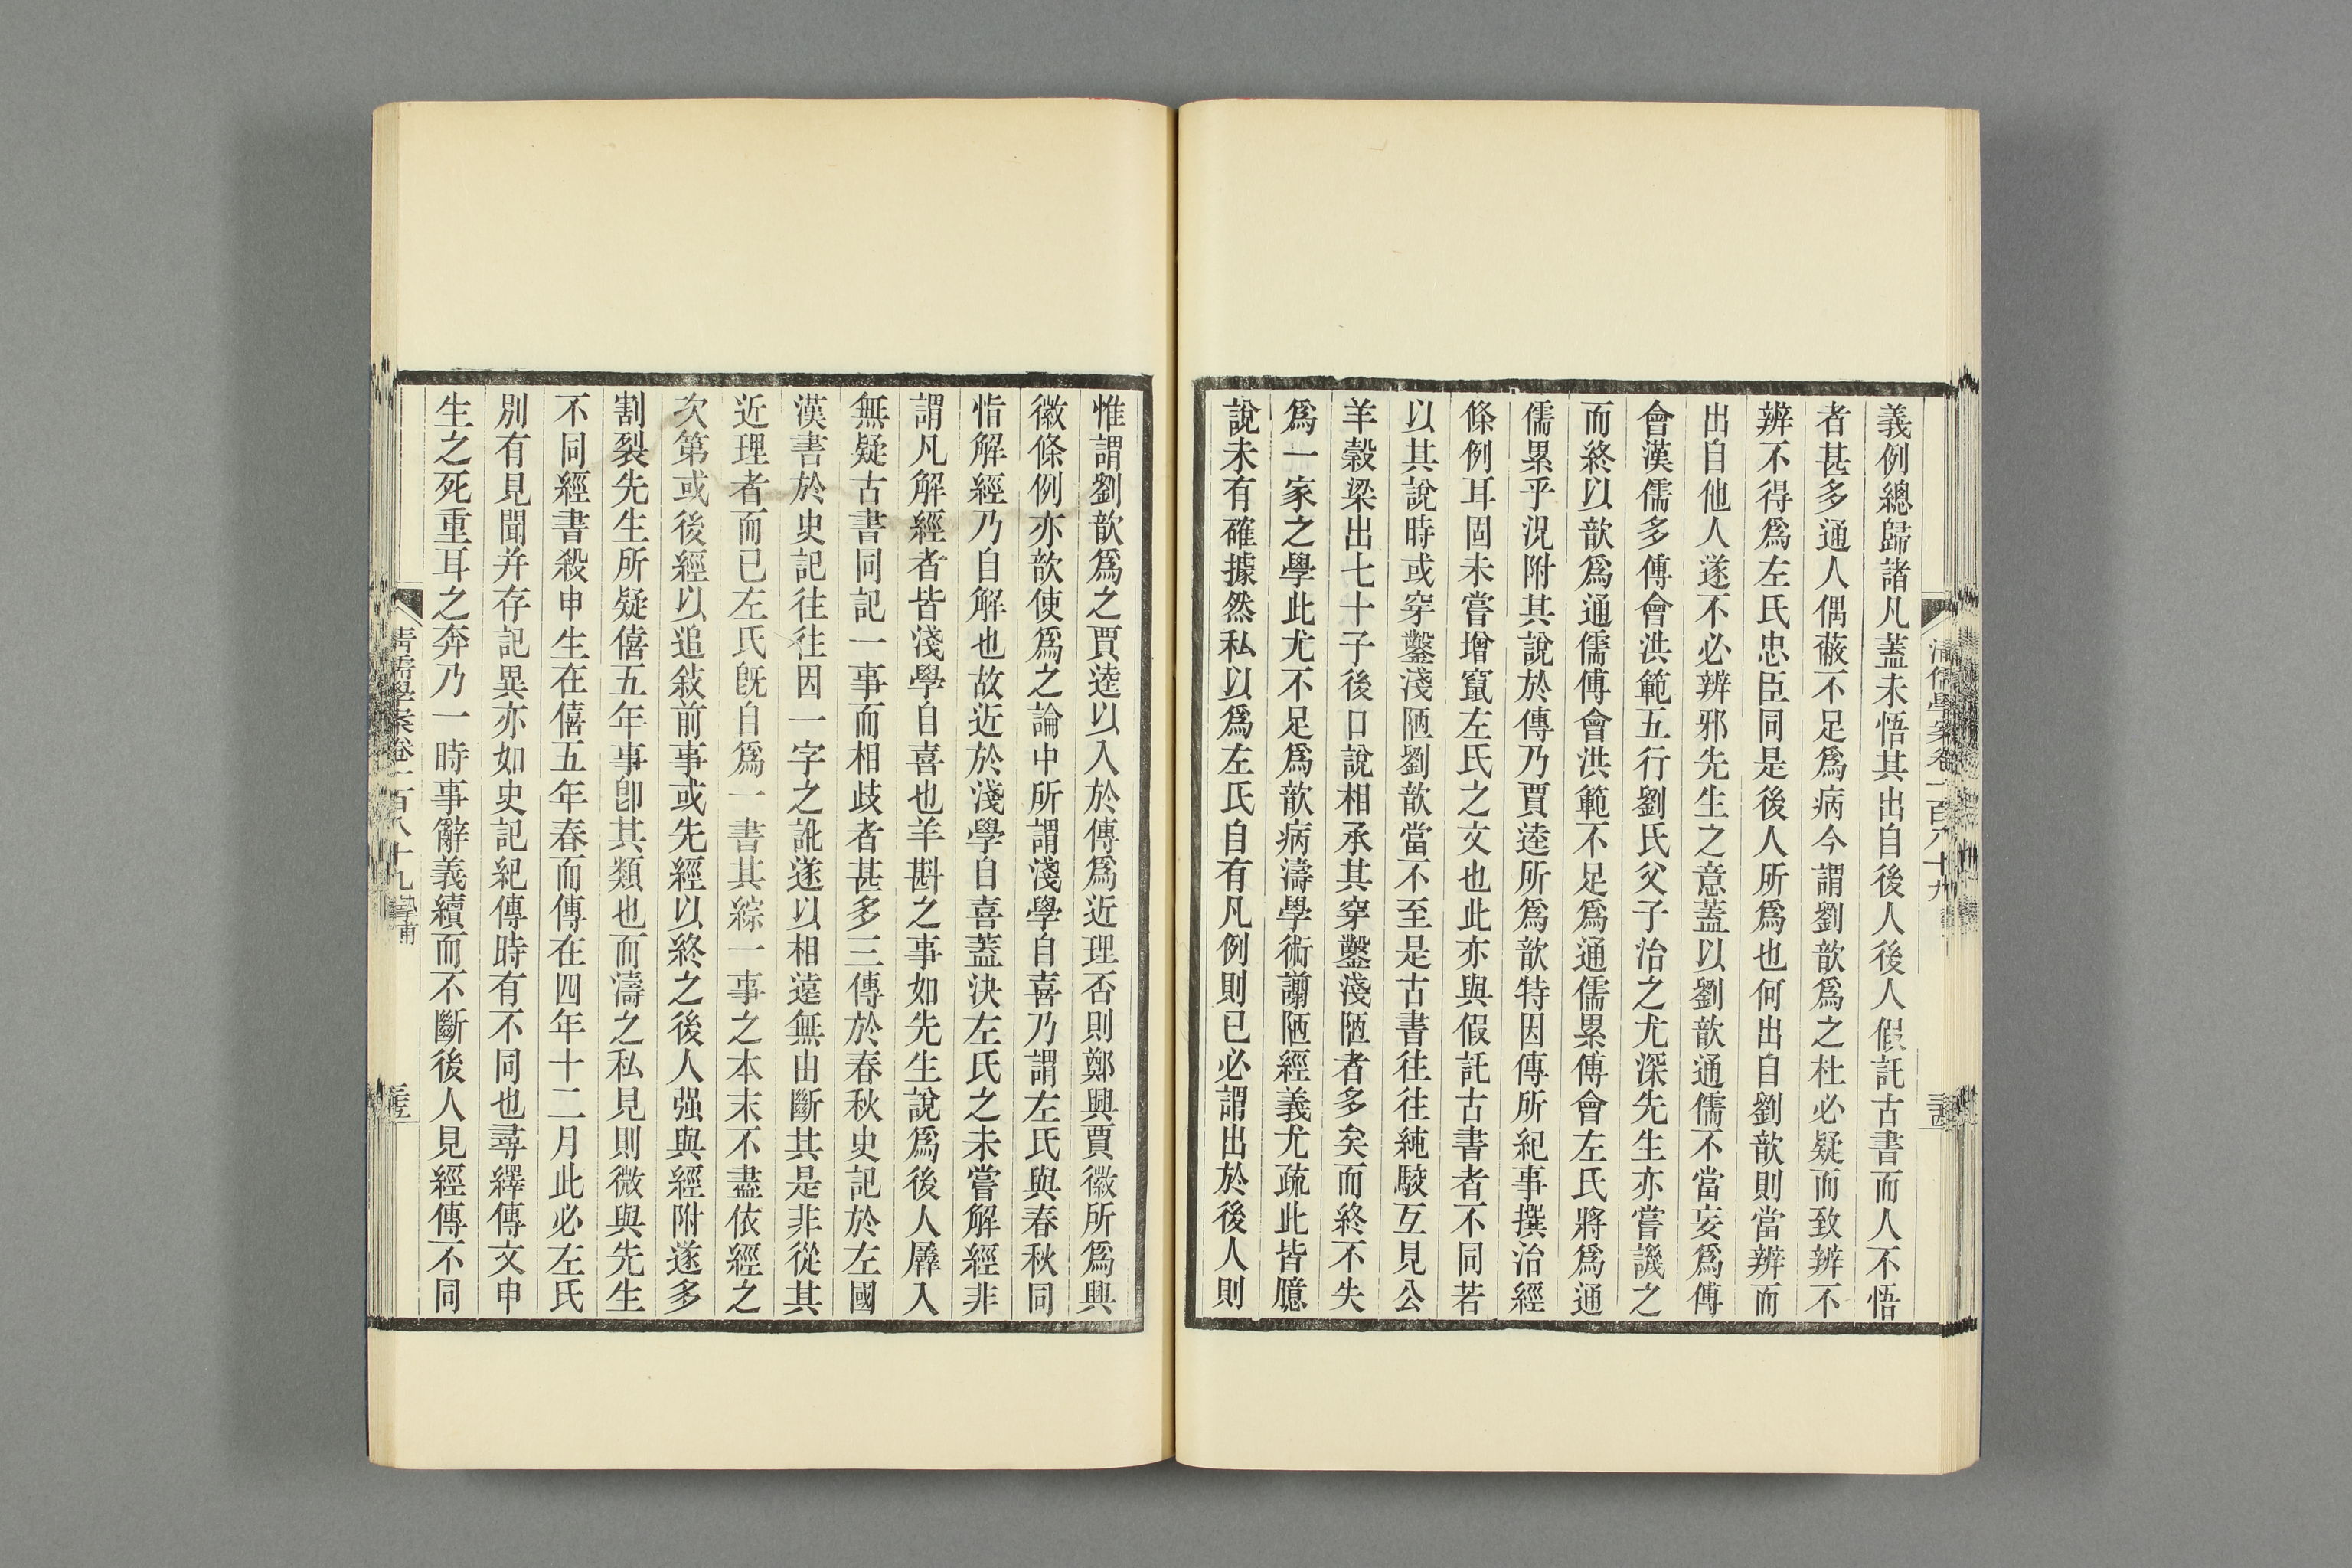 義例總歸諸凡蓋未悟其出自後人後人假託古書而人不悟
者甚多通人偶蔽不足爲病今謂劉歆爲之杜必疑而致辨不
辨不得爲左氏忠臣同是後人所爲也何出自劉歆則當辨而
出自他人遂不必辨邪先生之意蓋以劉歆通儒不當妄爲傅
會漢儒多傅會洪範五行劉氏父子治之尤深先生亦嘗譏之
而終以歆爲通儒傅會洪範不足爲通儒累傅會左氏將爲通
儒累乎況附其說於傳乃賈逵所爲歆特因傳所紀事撰治經
條例耳固未嘗增竄左氏之文也此亦與假託古書者不同若
以其說時或穿鑿淺陋劉歆當不至是古書往往純駮互見公
羊穀梁出七十子後口說相承其穿鑿淺陋者多矣而終不失
爲一家之學此尤不足爲歆病濤學術謭陋經義尤疏此皆臆
說未有確據然私以爲左氏自有凡例則已必謂出於後人則
清儒學案卷一百八十九
惟謂劉歆爲之賈逵以入於傳爲近理否則鄭興賈徽所爲興
徽條例亦歆使爲之論中所謂淺學自喜乃謂左氏與春秋同
恉解經乃自解也故近於淺學自喜蓋決左氏之未嘗解經非
謂凡解經者皆淺學自喜也羊斟之事如先生說爲後人羼入
無疑古書同記一事而相歧者甚多三傳於春秋史記於左國
漢書於史記往往因一字之訛遂以相遠無由斷其是非從其
近理者而已左氏旣自爲一書其綜一事之本末不盡依經之
次第或後經以追敍前事或先經以終之後人强與經附遂多
割裂先生所疑僖五年事卽其類也而濤之私見則微與先生
不同經書殺申生在僖五年春而傳在四年十二月此必左氏
別有見聞幷存記異亦如史記紀傳時有不同也尋繹傳文申
生之死重耳之奔乃一時事辭義續而不斷後人見經傳不同
清儒學案卷一百八十九